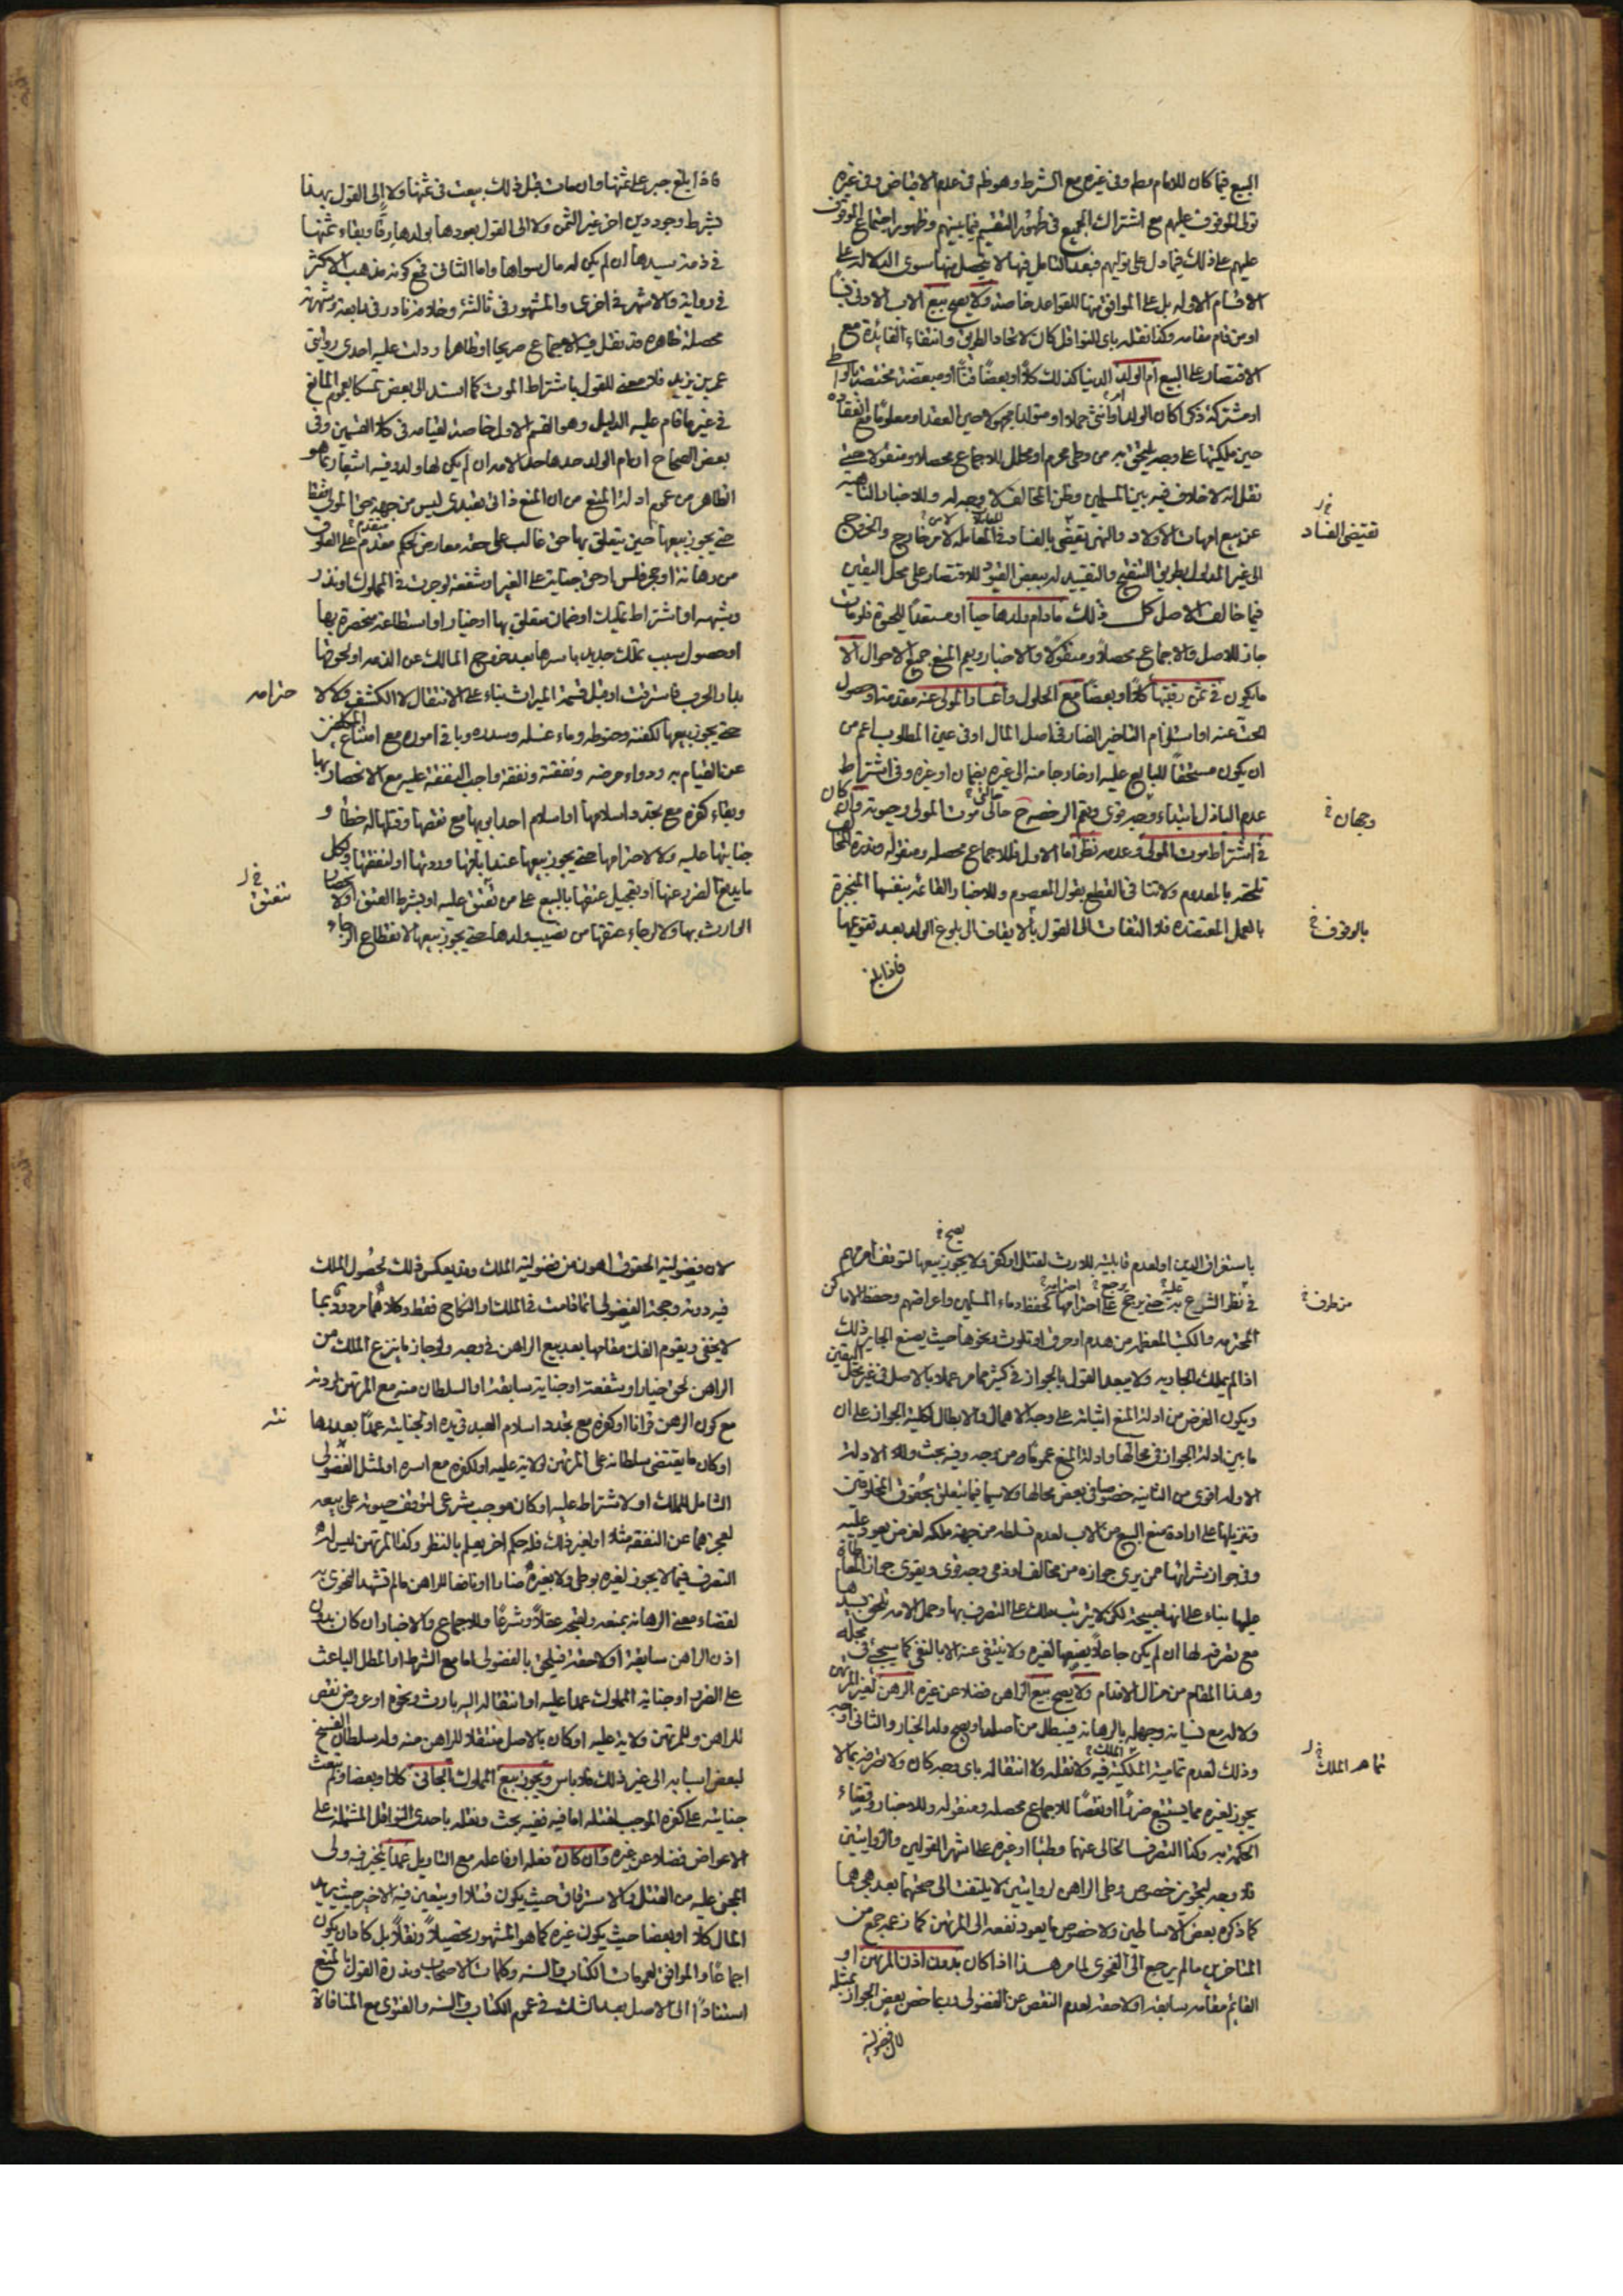 البيع فيما كان للامام مطم وفى غيره مع الشرط وهو ظم فى عدم الاقباض وفى غيره
تولى الموقوف عليهم مع اشتراك الجميع فى ظهور التقسيم فيما بينهم وظهور اجتماع الموقوف
عليهم على ذلك فيما دل على توليهم فبعد التامل فيها لا يحصل منها سوى الدلالة على
الاقسام الاوله بل على الموافق منها للقواعد خاصة ولا يصح بيع الاب الادنى
او من قام مقامه وكذا نقله باى النواقل كان لاتحاد الطريق وانتفاء الفائدة مع
الاقتصار على البيع ام الولد الدنيا كذلك كلا او بعضا قنا او مبعضة مختصة بالواطى
او مشتركة ذكرا كان الولد او انثى حملا او متولدا مجهولا حين العقد او معلوما مع انعقاده
حين ملكيتها على وجه يلحق به من وطى محرم او محلل للاجماع محصلا ومنقولا حتى
نقل انه لا خلاف فيه بين المسلمين وظن المخالف لا وجه له وللاخبار الناهية
عن بيع امهات الاولاد والنهى يقضى بالفساد فى المعاملة لا من خارج والخروج
تقتضى الفساد
الى غير المدلول بطريق التنقيح والتقييد له ببعض القيود للاقتصار على محل اليقين
فيما خالف الاصل كل ذلك مادام ولدها حيا او مستعدا للحيوة فلو مات
جاز للاصل والاجماع محصلا ومنقولا والاخبار ويعم المنع جميع الاحوال الا
ما يكون فى ثمن رقبتها كلا او بعضا مع الحلول واعسار المولى عنه مقدمة او حصول
البحث عنه او استلزام التاخير الضار فى اصل المال او فى عين المطلوب اعم من
ان يكون مستحقا للبايع عليه او خارجا منه الى غيره بضمان او غيره وفى اشتراط
عدم الباذل ابتداء وجه قوى ويعم الرخصة حالى موت المولى وحيوته وان كان
وجهان
فى اشتراط موت المولى وعدمه نظر اما الاول فللاجماع محصله ومنقوله وندرة المخالف
تلحقه بالمعدوم ولا تنافى القطع بقول المعصوم وللاخبار والقاعدة بنفسها المنجبرة
بالعمل المعتضدة فلا التفات الى القول بالايقاف الى بلوغ الولد بعد تقويمها
بالوقوف
فاذا بلغ
فاذا بلغ جبر على ثمنها وان مات قبل ذلك بيعت فى ثمنها ولا الى القول بهذا
بشرط وجود دين اخر غير الثمن ولا الى القول بعودها بولدها رقا وبقاء ثمنها
فى ذمة سيدها ان لم يكن له مال سواها واما الثانى فمع كونه مذهب الاكثر
فى رواية والاشهر فى اخرى والمشهور فى ثالثة وخلافه نادر فى رابعة وشهرته
محصلة ظاهرة قد نقل فيه الاجماع صريحا او ظاهرا ودلت عليه احدى روايتى
عمر بن يزيد فلا معنى للقول باشتراط الموت كما اسند الى بعض تمسكا بعموم المانع
فى غير ما قام عليه الدليل وهو القسم الاول خاصة لقيامه فى كلا القسمين وفى
بعض الصحاح ان ام الولد حدها حد الامة ان لم يكن لها ولد وفيه اشعار بما هو
الظاهر من عموم ادلة المنع من ان المنع ذاتى تعبدى ليس من جهة حق المولى فقط
حتى يجوز بيعها حين يتعلق بها حق غالب على حقه معارض لحكم مقدم على العلوق
من رهانة او حجر فلس او حق جناية على الغير او شفعة لو جرت فى المملوك او نذر
وشبهه او اشتراط تمليك او ضمان متعلق بها او خيار او استطاعة منحصرة بها
او حصول سبب تملك جديد باسرها بعد خروج المالك عن الذمه او لحوقها
بدار الحرب فاسترقت او قبل قسمة الميراث بناء على الانتقال لا الكشف ولا لا
حترامه
حتى يجوز بيعها لكفنه وحنوطه وماء غسله وسدره وباقى اموره مع امتناع
عن القيام به ودواء مرضه ونفقته ونفقة واجب النفقة عليه مع الانحصار بها
وبقاء كفره مع تجدد اسلامها او اسلام احد ابويها مع نقصها وقتلها له خطأ و
جنايتها عليه ولا لاحترامها حتى يجوز بيعها عند اباقها وردتها او لنفقتها ولكل
ما يدفع الضرر عنها او تعجيل عتقها بالبيع على من تنعتق عليه او بشرط العتق ولا
تنعتق
الوارث بها ولا لرجاء عتقها من نصيب ولدها حتى يجوز بيعها لانقطاع الرجاء
باستغراق الدين او لعدم قابليته للارث لقتل او كفر ولا يجوز بيعها لتوقف امر مهم
فى نظر الشرع به حتى يرجح على احترامها كحفظ دماء المسلمين واعراضهم وحفظ الاماكن
من طرف
المحترمه والكتب المعظمه من هدم او حرق او تلوث ونحوها حيث يصنع الجاير ذلك
اذا لم يملك الجاريه ولا يبعد القول بالجواز فى كثير مما مر عملا بالاصل فى غير محل اليقين
ويكون الغرض من ادلة المنع اثباته على وجه الاهمال والابطال لكلية الجواز على ان
ما بين ادلة الجواز فى محالها وادلة المنع عموما من وجه وفيه بحث والادلة
الاوله اقوى من الثانية خصوصا فى بعض محالها ولا سيما فيما يتعلق بحقوق المخلوقين
وتنزيلها على ارادة منع البيع من الاب لعدم تسلطه من جهة ملكه لغرض يعود عليه
وفى جواز شرائها ممن يرى جوازه من مخالف او ذمى وجه قوى ويقوى جواز
عليها بناء على انها صحيحة لكن لا يترتب ملك على التصرف بها وحمل الامة تلحق بسيدها
مع تصرفه لها ان لم يكن جاعلا بضعها لغيره ولا ينتفى عنه الا بالنفى كما سيجئ فى محله
وهذا المقام من مزال الاقدام ولا يصح بيع الراهن فضلا عن غيره الرهن لغير المرتهن
ولا له مع نسيانه وجهله بالرهانة فيبطل من اصله او يصح وله الخيار والثانى اوجه
وذلك لعدم تمامية الملكية فيه ولا نقله ولا انتقاله باى وجه كان ولا تصرفه بما لا
تمامه الملك
يجوز لغيره مما يستتبع ضررا او نقصا للاجماع محصله ومنقوله وللاخبار وقضاء
الحكمة به وكذا التصرف الخالى عنهما وطئا او غيره على اشهر القولين والروايتين
فلا وجه لتجويز خصوص وطى الراهن لروايتين لا يلتفت الى صحتهما بعد هجرهما
كما ذكره بعض الاساطين ولا خصوص ما يعود نفعه الى المرتهن كما زعمه جمع من
المتاخرين ما لم يرجع الى الفحوى لما مر هذا اذا كان بدون اذن المرتهن او
القائم مقامه سابقة او لاحقة لعدم النقص عن الفضولى وربما خص بعض الجواز بمثله
لان فضولية
لان فضولية الحقوق اهون من فضولية الملك وقد يعكس ذلك لحصول الملك
فيه دونه وحجة الفضولى انما قامت فى الملك او النكاح فقط وكلاهما مردود بما
لا يخفى ويقوم الفك مقامها بعد بيع الراهن فى وجه ولو جاز ما ينزع الملك من
الراهن لحق خيار او شفعة او جناية سابقة او السلطان منه مع المرتهن لردته
مع كون الرهن قرانا او كفره مع تجدد اسلام العبد فى يده او لجنايته عمدا بعدها
او كان ما يقتضى سلطانه على المرتهن ولاية عليه او لكفره مع اسره او لمثل الفضولى
الشامل للملك او لاشتراط عليه او كان موجب شرعى لتوقف حيوته على بيعه
لعجزهما عن النفقة مثلا او لغير ذلك فله حكم اخر يعلم بالنظر وكذا المرتهن ليس له
التصرف فيما لا يجوز لغيره بوطى ولا بغيره ضارا او نافعا للراهن ما لم تشهد الفحوى به
لقضاء معنى الرهانة بمنعه ولقبحه عقلا وشرعا وللاجماع والاخبار ان كان بدون
اذن الراهن سابقة او لاحقة فيلحق بالفضولى اما مع الشرط او المطل الباعث
على الضرر او جناية المملوك عمدا عليه او انتقاله اليه بارث ونحوه او عروض نقص
للراهن وللمرتهن ولاية عليه او كان بالاصل منتقلا للراهن منه وله سلطان الفسخ
لبعض اسبابه الى غير ذلك فلا باس ويجوز بيع المملوك الجانى كلا وبعضا ولم تبعث
جنايته على كفره الموجب لقتله اما فيه ففيه بحث ونقله باحدى النواقل المشتملة على
الاعواض فضلا عن غيره وان كان فعله او فاعله مع التاويل عمدا يخير فيه ولى
المجنى عليه من القتل والاسترقاق حيث يكون قتلا او يتعين فيه الاخير حيث يريد
المال كلا او بعضا حيث يكون غيره كما هو المشهور تحصيلا ونقلا بل كاد ان يكون
اجماعا والموافق لعمومات الكتاب والسنه وكلمات الاصحاب وندرة القول بالمنع
استنادا الى الاصل بعد الشك فى عموم الكتاب والسنه والفتوى مع المنافاة